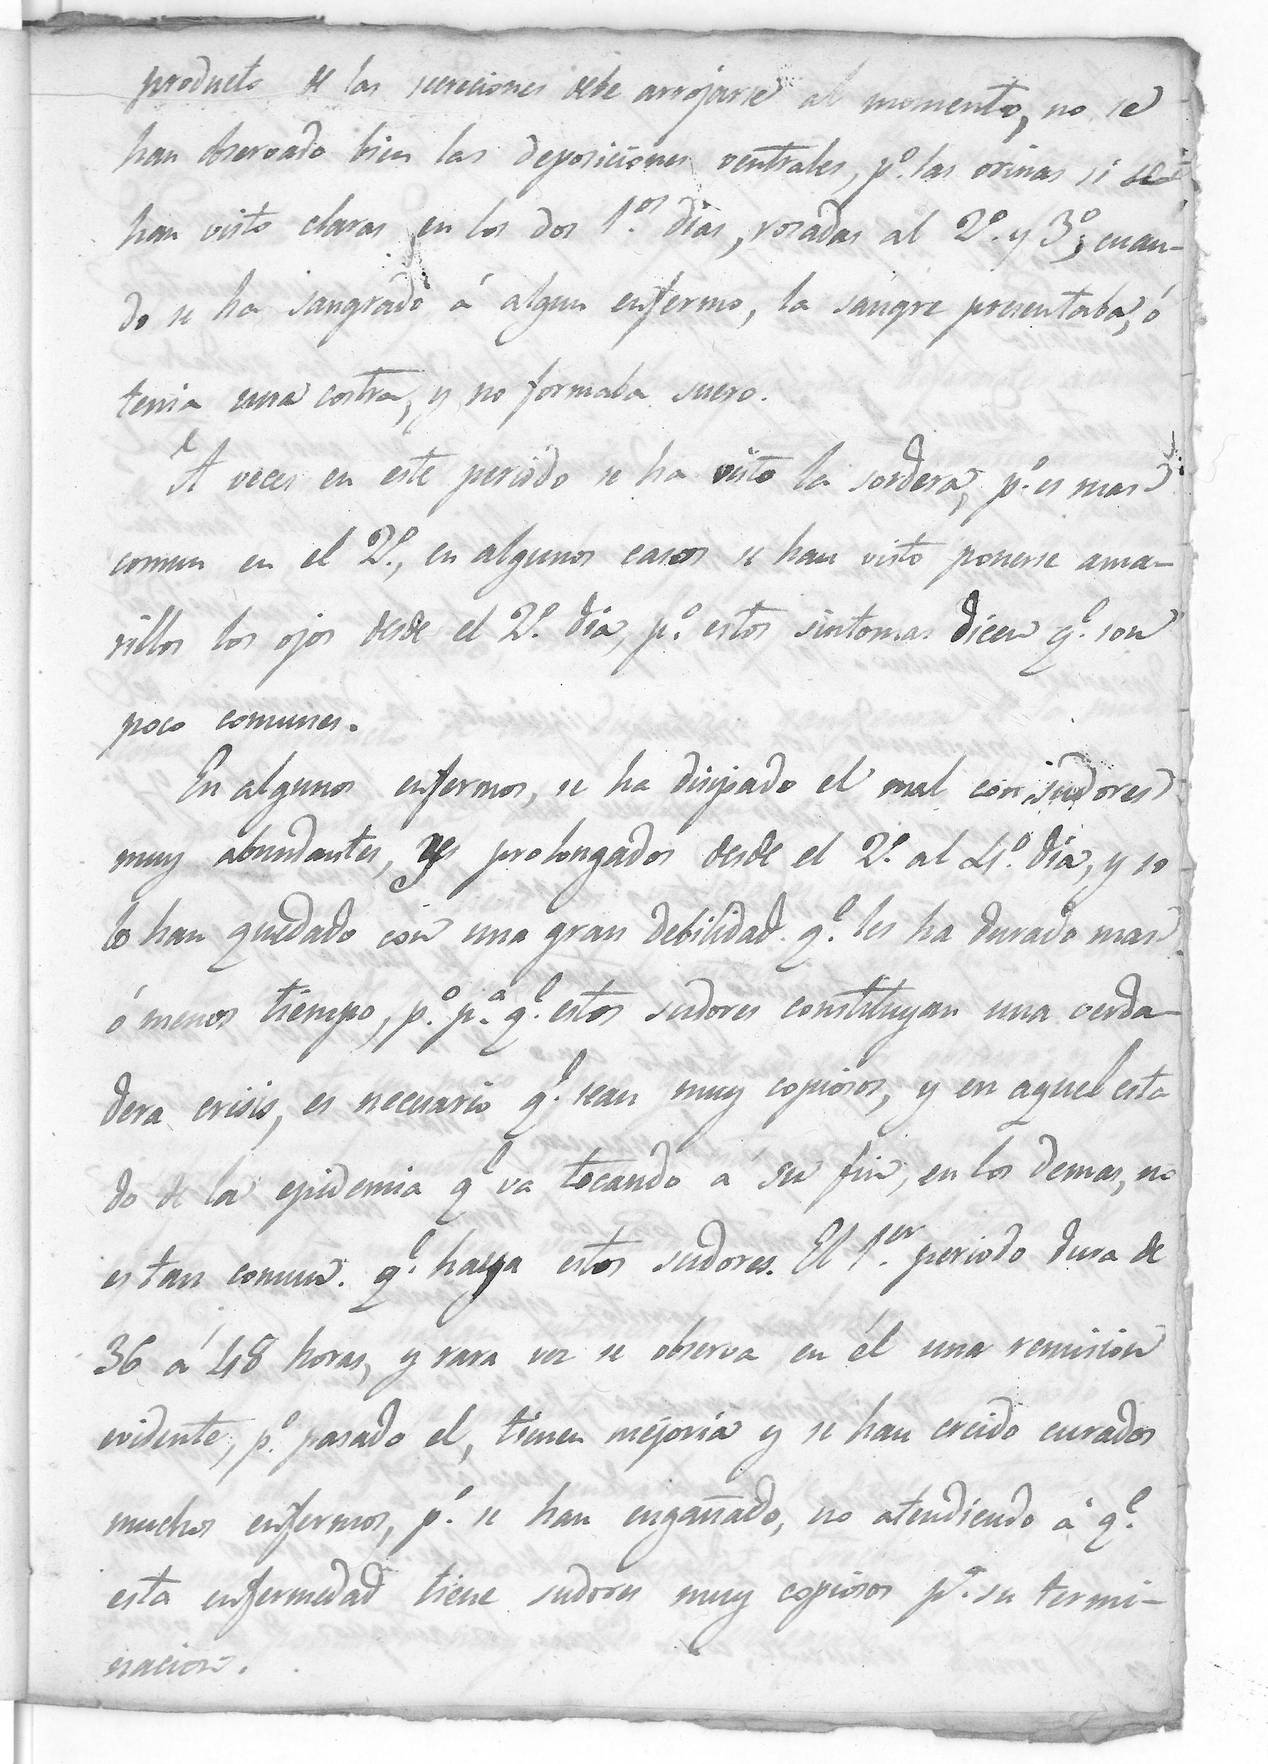 producto de las secreciones debe arrojarse al momento, no se
han observado bien las deposiciones ventrales, p.º las orinas si se
han visto claras en los dos 1.os dias, rosadas al 2.º y 3.º, cuan-
do se ha sangrado á algun enfermo, la sangre presentaba, ó
tenia una costra, y no formaba suero.
A veces en este periodo se ha visto la sordera, p.º es mas
comun en el 2.º, en algunos casos se han visto ponerse ama-
rillos los ojos desde el 2.º dia, p.º estos sintomas dicen q.e son
poco comunes.
En algunos enfermos, se ha disipado el mal con sudores
muy abundantes, y prolongados desde el 2.º al 4.º dia, y so
lo han quedado con una gran debilidad q.e les ha durado mas
ó menos tiempo, p.º p.a q.e estos sudores constituyan una verda-
dera crisis, es necesario q.e sean muy copiosos, y en aquel esta
do de la epidemia q.e va tocando á su fin, en los demas, no
es tan comun q.e haya estos sudores. El 1.er periodo dura de
36 á 48 horas, y rara vez se observa en él una remision
evidente, p.º pasado el, tienen mejoria y se han creido curados
muchos enfermos, p.º se han engañado, no atendiendo á q.e
esta enfermedad tiene sudores muy copiosos p.a su termi-
nacion.